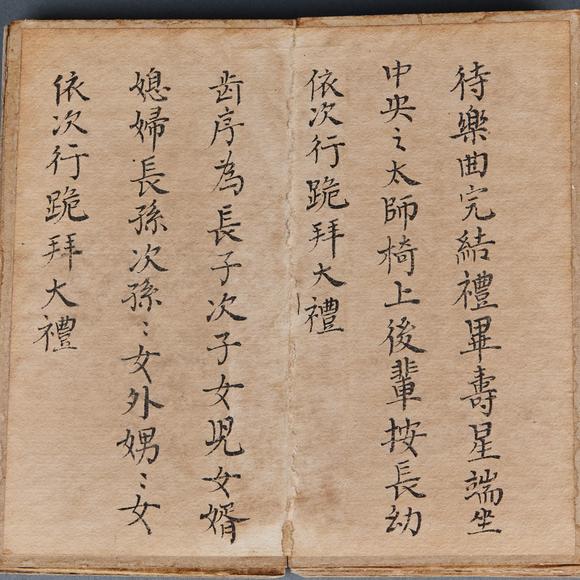 待樂曲完結禮畢壽星端坐
中央之太師椅上後輩按長幼
依次行跪拜大禮
齿序為長子次子女児女婿
媳婦長孫次孫〻女外娚〻女
依次行跪拜大禮